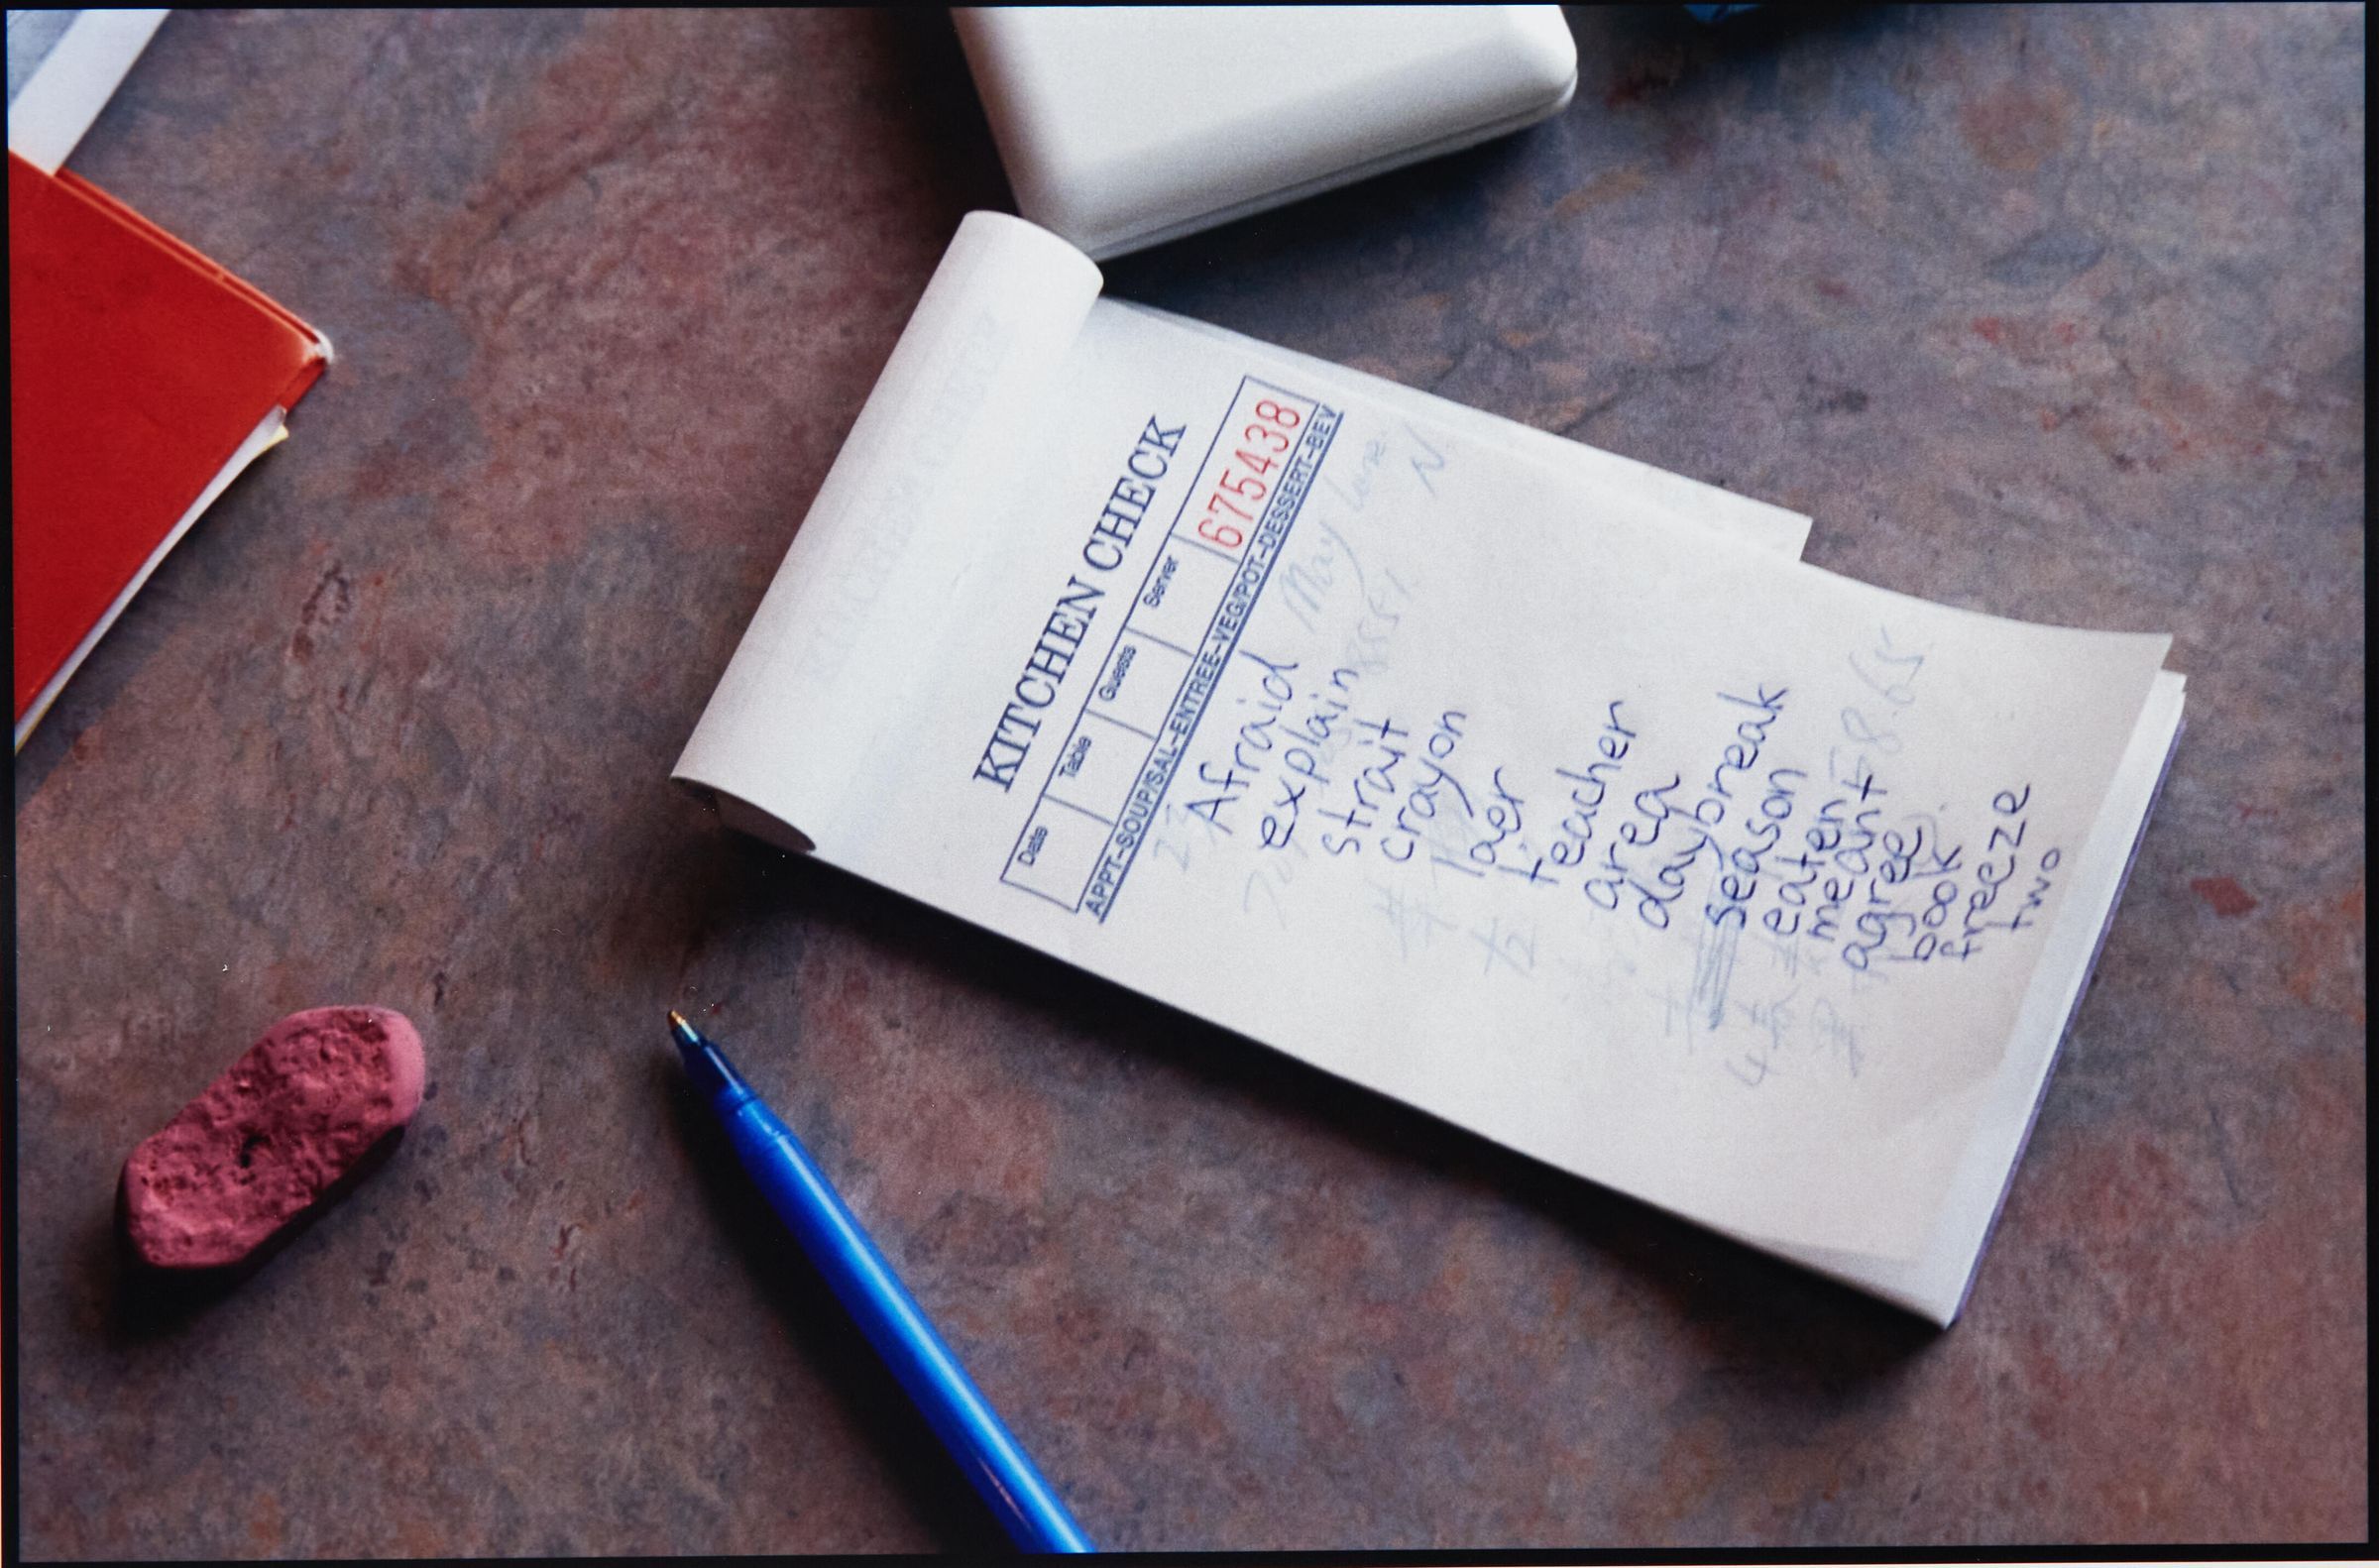 KITCHEN CHECK
Date Table Guests Server 675438
APPT-SOUP/SAL-ENTREE-VEG/POT-DESSERT-BEV
Afraid
explain
strait
crayon
laer
teacher
area
daybreak
season
eaten
meant
agree
book
freeze
two